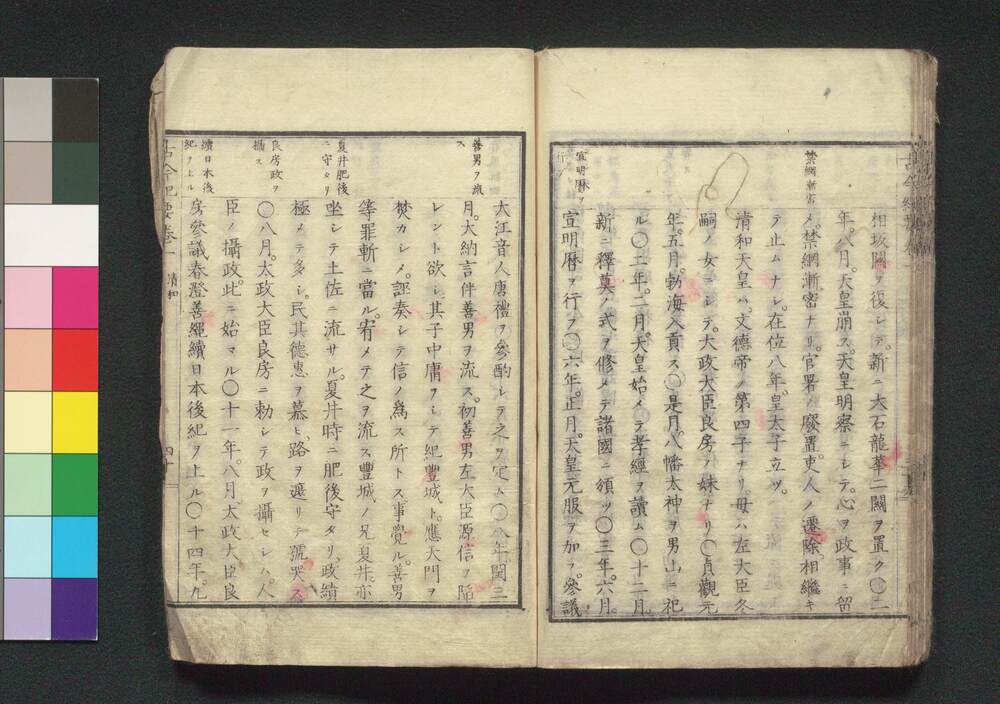 相坂關ヲ復シテ。新ニ大石龍華二關ヲ置ク〇二
年。八月。天皇崩ス。天皇明察ニシテ。心ヲ政事ニ留
禁網漸密
メ。禁網漸密ナリ。官署ノ廢置。吏人ノ遷除。相繼キ
テ止ムナシ。在位八年。皇太子立ツ。
清和天皇ハ。文德帝ノ第四子ナリ。母ハ左大臣冬
嗣ノ女ニシテ。大政大臣良房ノ妹ナリ〇貞觀元
年。五月。勃海入貢ス〇是月。八幡太神ヲ男山ニ祀
ル〇二年。二月。天皇始メテ孝經ヲ讀ム〇十二月。
新ニ釋奠ノ式ヲ修メテ諸國ニ頒ツ〇三年。六月。
宣明暦ヲ
行フ
宣明暦ヲ行フ〇六年。正月。天皇元服ヲ加フ。參議
大江音人唐禮ヲ參酌シテ之ヲ定ム〇八年。閏三
善男ヲ流
ス
月。大納言伴善男ヲ流ス。初善男左大臣源信ヲ陷
レント欲シ。其子中庸ヲシテ紀豐城ト。應天門ヲ
焚カシメ。誣奏シテ信ノ爲ス所トス。事覺ル。善男
等罪斬ニ當ル。宥メテ之ヲ流ス。豐城ノ兄夏井。亦
夏井肥後
ニ守タリ
坐シテ土佐ニ流サル。夏井時ニ肥後守タリ。政績
極メテ多シ。民其德惠ヲ慕ヒ。路ヲ遮リテ號哭ス
良房政ヲ
攝ス
〇八月。太政大臣良房ニ勅シテ政ヲ攝セシム。人
臣ノ攝政。此ニ始マル〇十一年。八月。太政大臣良
續日本後
紀ヲ上ル
房參議春澄善繩續日本後紀ヲ上ル〇十四年。九
古今紀要卷一
清和
四十